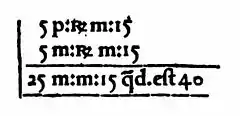 5 p:℞ m:15
5 m:℞ m:15
25 m:m:15 q̃d.est 40